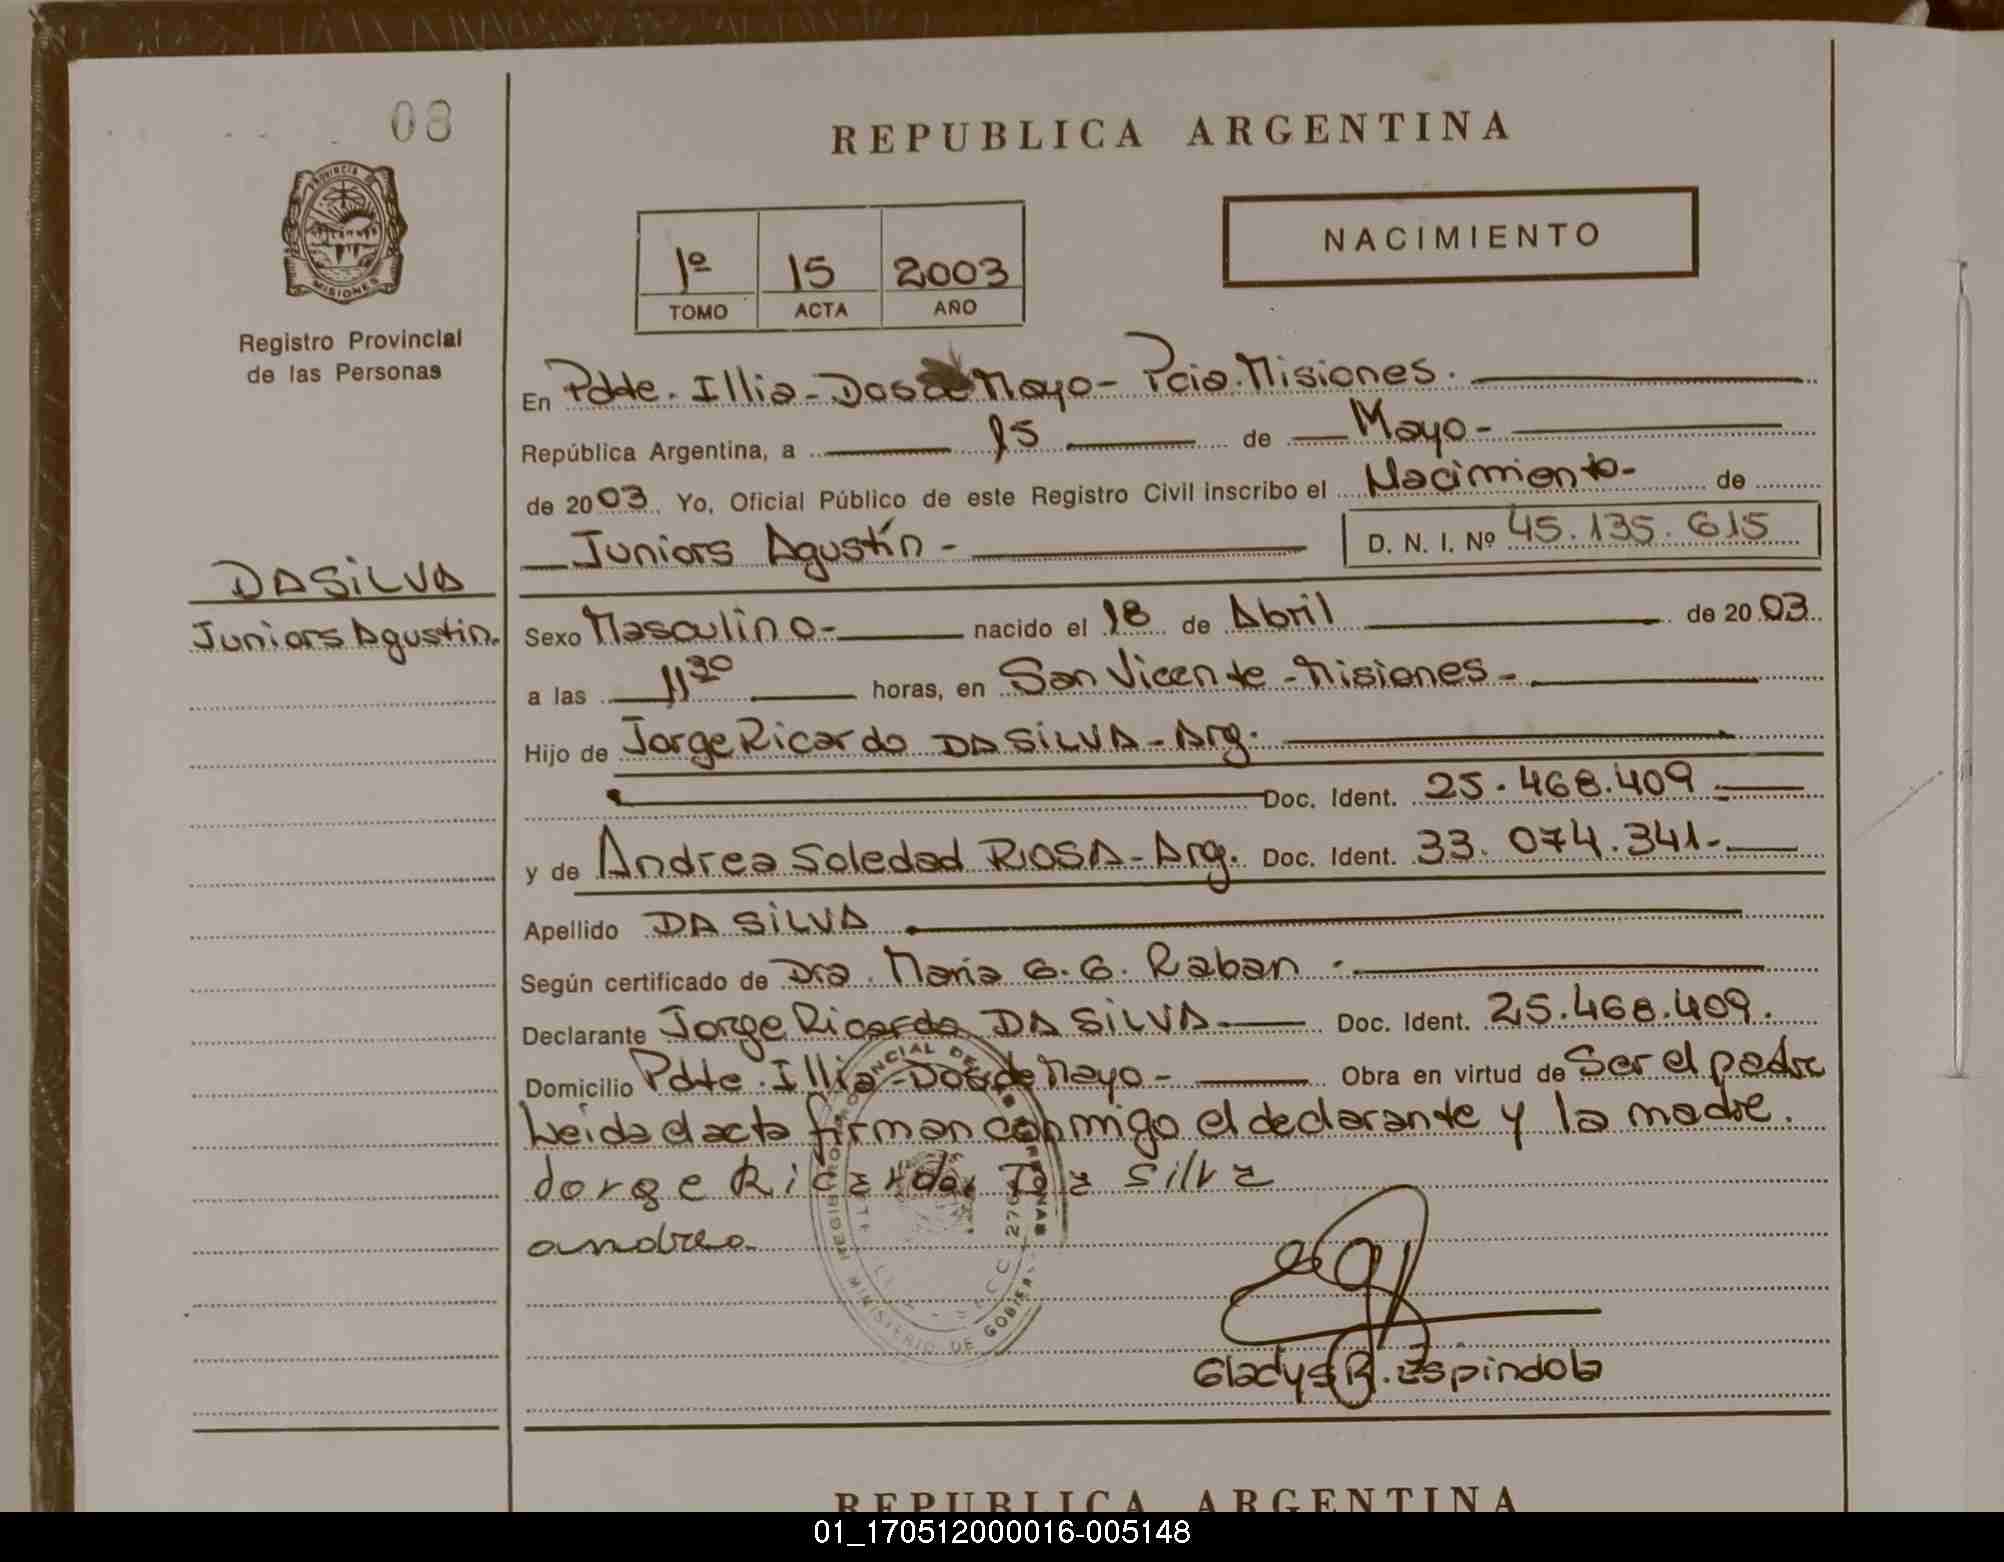 08
REPUBLICA ARGENTINA
PROVINCIA DE
MISIONES
NACIMIENTO
1º 15 2003
TOMO ACTA AÑO
Registro Provincial
de las Personas
En Pdte. Illia - Dos de Mayo - Pcia. Misiones.
República Argentina, a 15 de Mayo -
de 2003. Yo, Oficial Público de este Registro Civil inscribo el Nacimiento - de
Juniors Agustín - D. N. I. Nº 45.135.615
DA SILVA
Juniors Agustin.
Sexo Masculino - nacido el 18 de Abril de 2003
a las 11 30 horas, en San Vicente - Misiones -
Hijo de Jorge Ricardo DA SILVA - Arg.
Doc. Ident. 25.468.409
y de Andrea Soledad ROSA - Arg. Doc. Ident. 33.074.341 -
Apellido DA SILVA
Según certificado de Dra. Maria G. G. Raban
Declarante Jorge Ricardo DA SILVA Doc. Ident. 25.468.409.
Domicilio Pdte. Illia - Dos de Mayo - Obra en virtud de Ser el padre
Leida el acta firman conmigo el declarante y la madre.
Jorge Ricardo Da Silva
andrea
MINISTERIO DE GOBIER
Gladys R. Espindola
REPUBLICA ARGENTINA
01_170512000016-005148